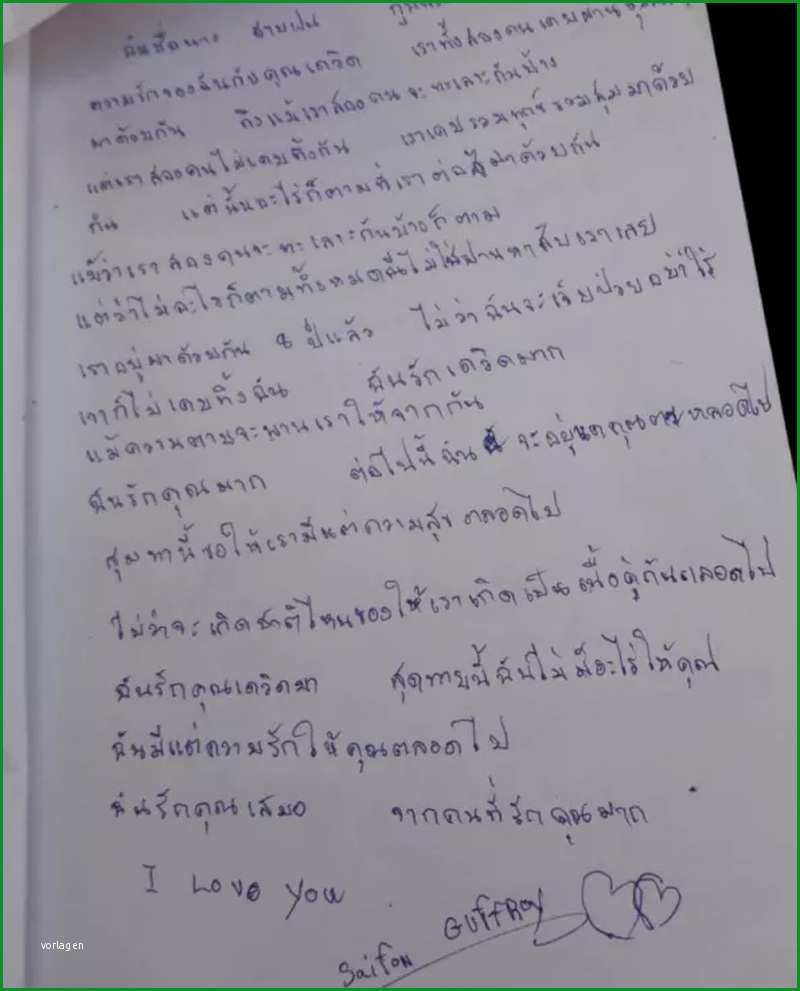 ฉันชื่อนาง สายฝน
ความรักของฉันกับคุณเดวิด เราทั้งสองคนเคยผ่าน
มาด้วยกัน ถึงแม้เราสองคนจะทะเลาะกันบ้าง
แต่เราสองคนไม่เคยทิ้งกัน เราเคยร่วมทุกข์ร่วมสุขมาด้วย
กัน แต่นั้นอะไรก็ตามที่เรา มาด้วยกัน
แม้ว่าเราสองคนจะทะเลาะกันบ้างก็ตาม
แต่ว่าไม่อะไรก็ตามทั้งหมดนี้ไม่ เราเลย
เราอยู่มาด้วยกัน 8 ปีแล้ว ไม่ว่าฉันจะเจ็บป่วยอย่าไร
เขาก็ไม่เคยทิ้งฉัน ฉันรักเดวิดมาก
แม้ความตายจะพานเราให้จากกัน
ฉันรักคุณมาก ต่อไปนี้ฉัน จะอยู่ ตลอดไป
สุดทานี้ขอให้เรามีแต่ความสุขตลอดไป
ไม่ว่าจะเกิดชาติไหนของให้เราเกิดเป็นเนื้อคู่กันตลอดไป
ฉันรักคุณเดวิดมา สุดทายนี้ฉันไม่มีอะไรให้คุณ
ฉันมีแต่ความรักให้คุณตลอดไป
ฉันรักคุณเสมอ จากคนที่รักคุณมาก
I Love You
Saifon GUFFROY
vorlagen